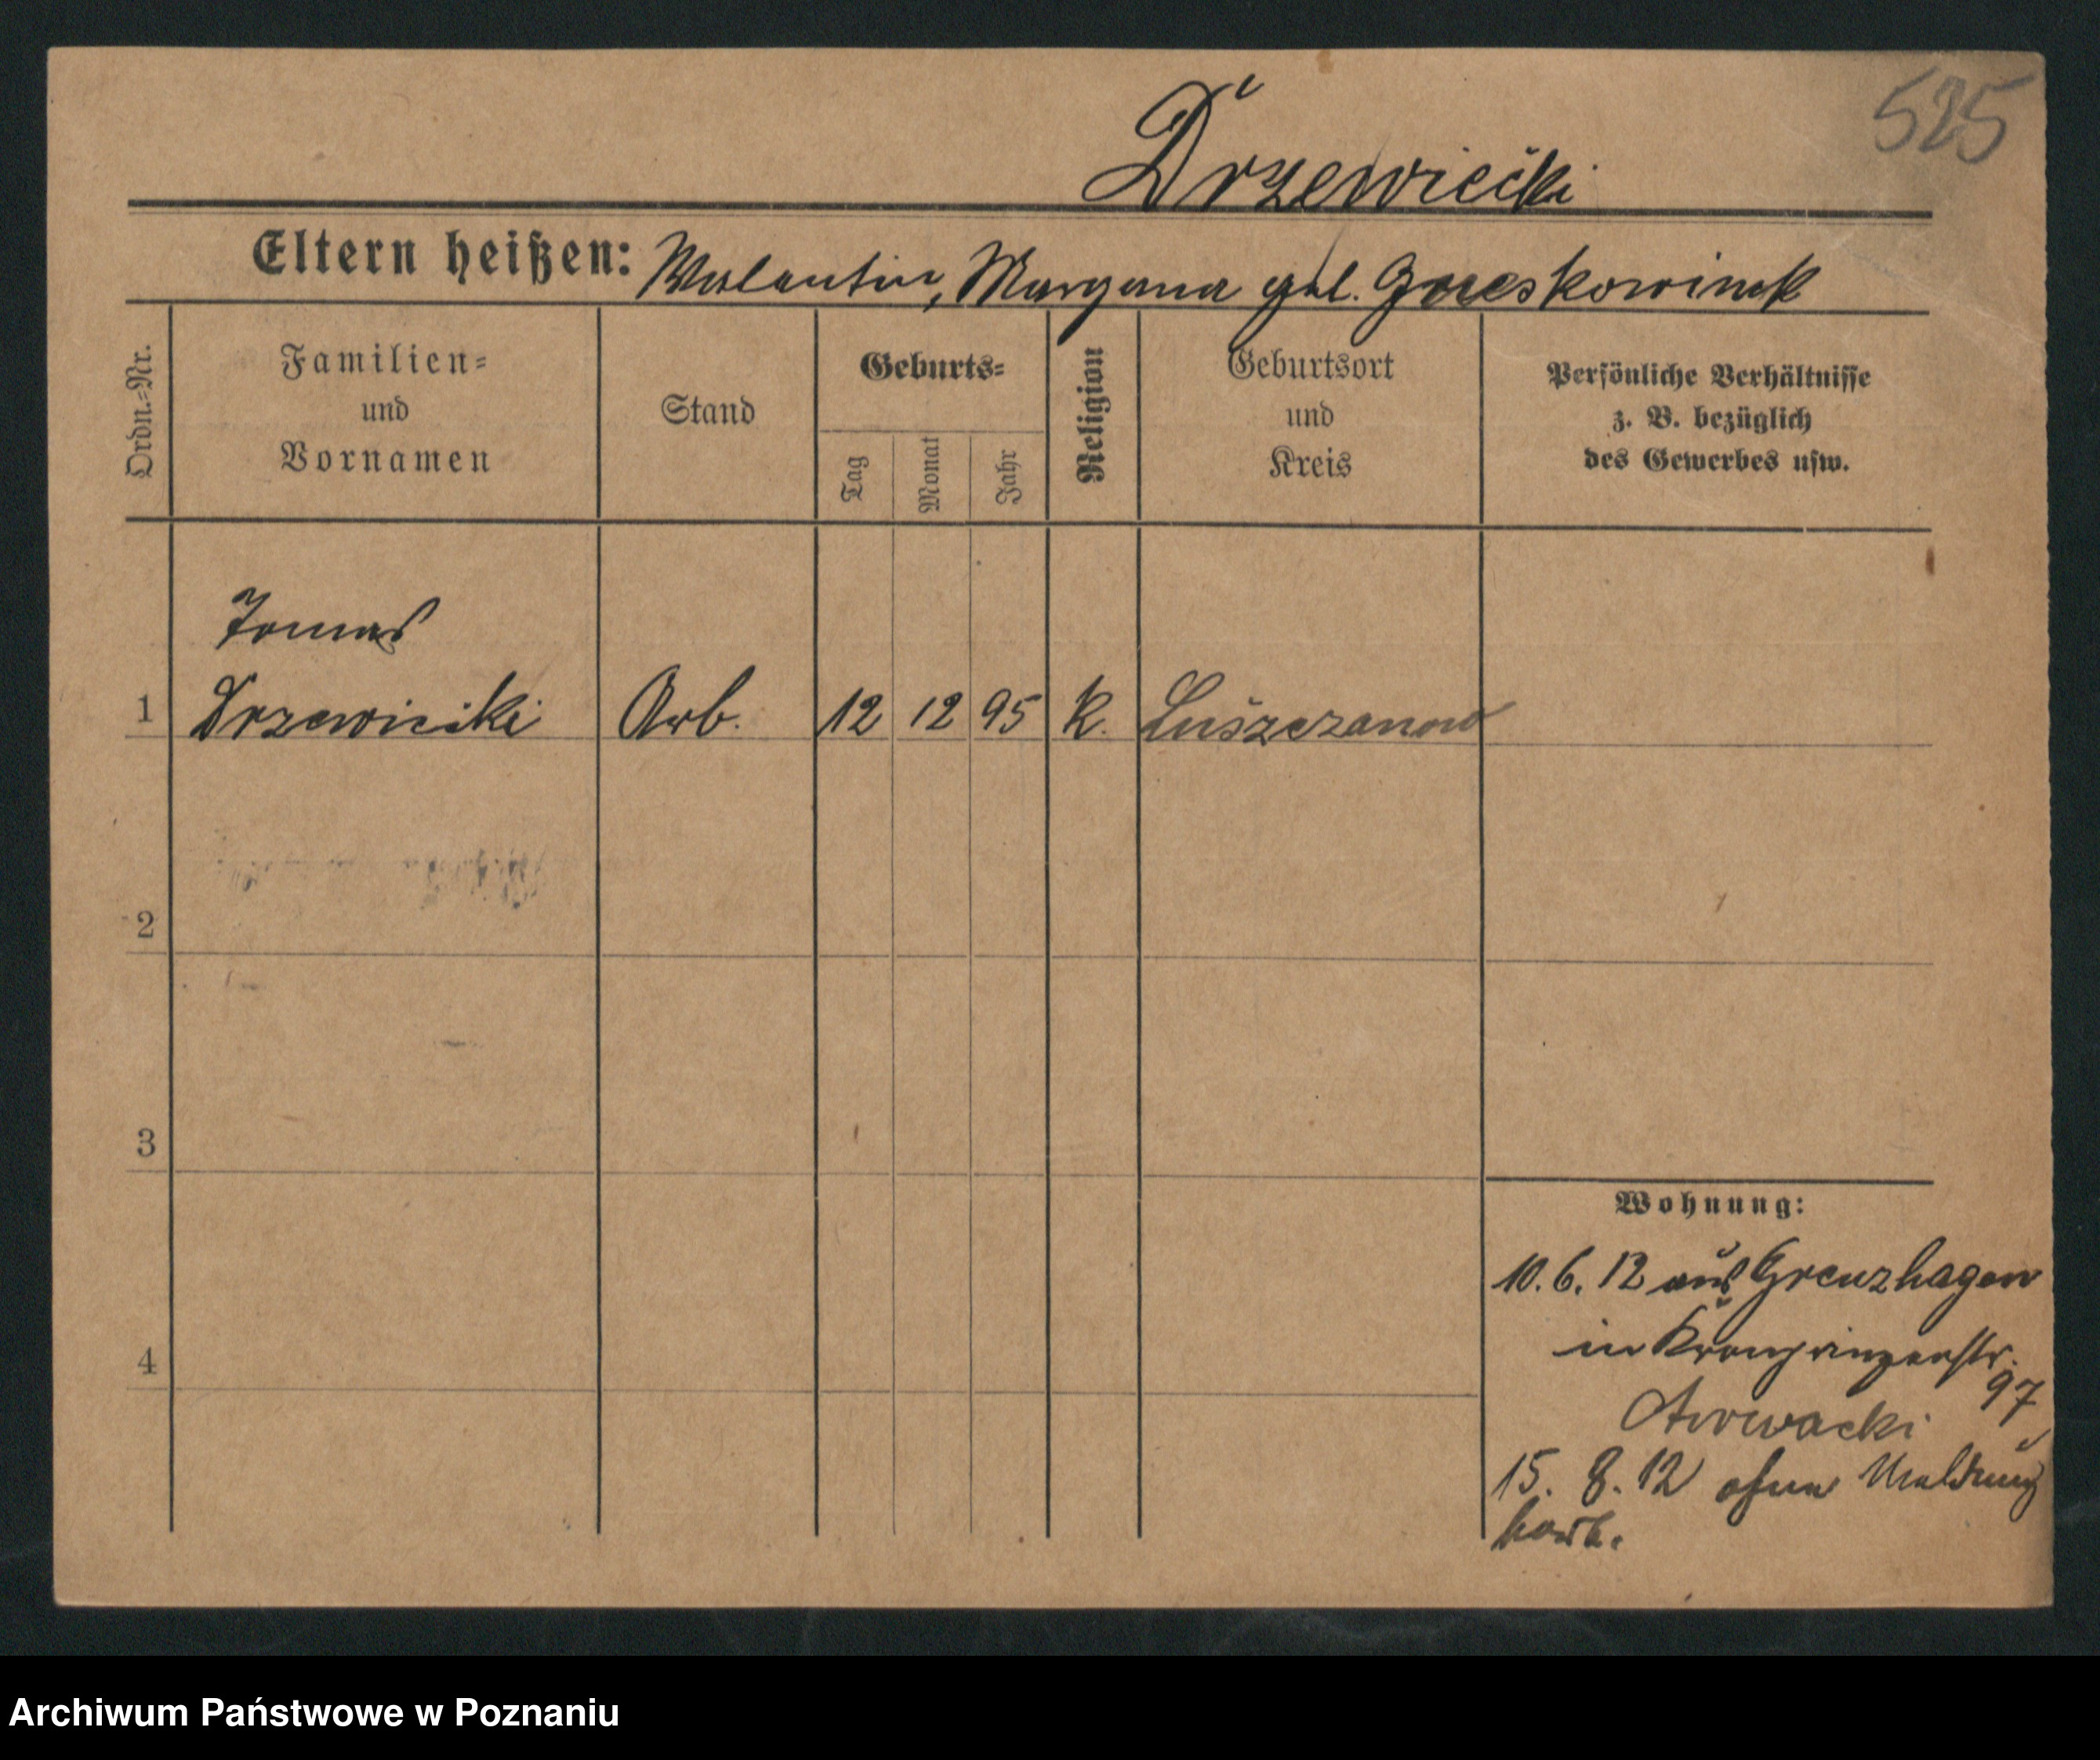 525
Drzewiecki
Eltern heißen: Valentin, Maryanna geb.
Ordn.-Nr.
Familien-
und
Vornamen
Stand
Geburts-
Tag
Monat
Jahr
Religion
Geburtsort
und
Kreis
Persönliche Verhältnisse
z. B. bezüglich
des Gewerbes usw.
Tomas
1 Drzewiecki Arb. 12 12 95 k. Luszczanow
2
3
4
Wohnung:
10.6.12 aus Grenzhagen
in Kronprinzenstr.
97
15.8.12 ohne Meldung
Archiwum Państwowe w Poznaniu